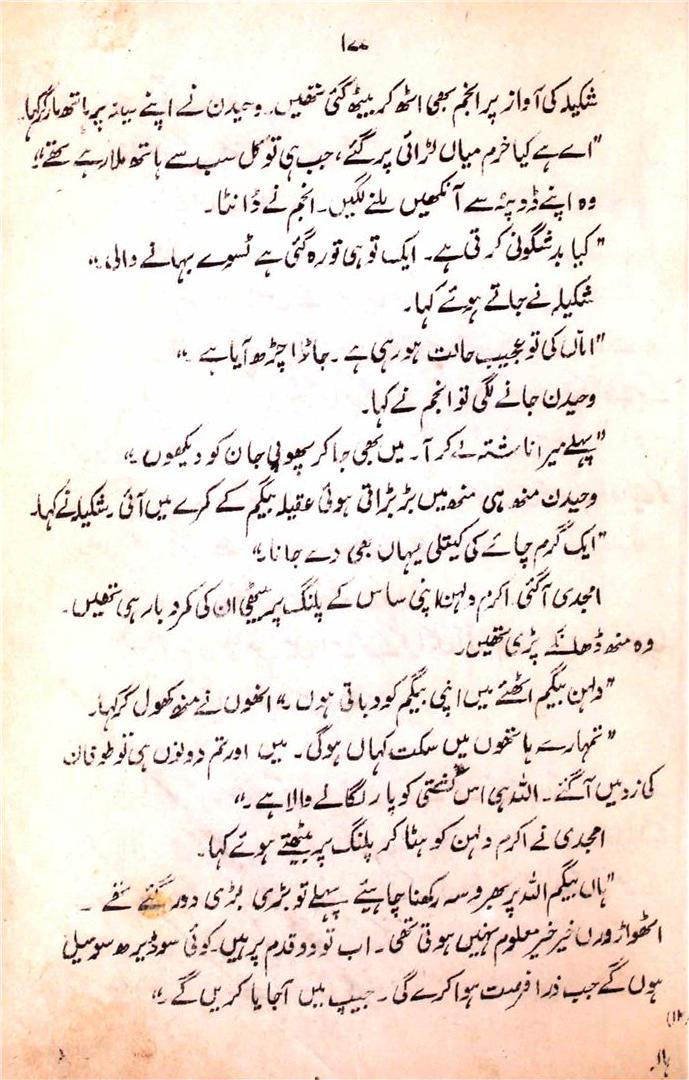 شکیلہ کی آواز پر انجم بھی اٹھ کر بیٹھ گئی تھیں۔ وحیدن نے اپنے سینہ پر ہاتھ مار کر کہا۔
"اے ہے کیا خرم میاں لڑائی پر گئے، جب ہی تو کل سب سے ہاتھ ملا رہے تھے"
وہ اپنے ڈوپٹہ سے آنکھیں ملنے لگیں۔ انجم نے ڈانٹا۔
"کیا بدشگونی کرتی ہے۔ ایک تو ہی تو رہ گئی ہے ٹسوے بہانے والی۔"
شکیلہ نے جاتے ہوئے کہا۔
"اماں کی تو عجیب حالت ہو رہی ہے۔ جاڑا چڑھ آیا ہے۔"
وحیدن جانے لگی تو انجم نے کہا۔
"پہلے میرا ناشتہ لے کر آ۔ میں بھی جا کر پھوپی جان کو دیکھوں۔"
وحیدن منھ ہی منھ میں بڑبڑاتی ہوئی عقیلہ بیگم کے کمرے میں آئی۔ شکیلہ نے کہا۔
"ایک گرم چائے کی کیتلی یہاں بھی دے جانا۔"
امجدی آگئی۔ اکرم دلہن اپنی ساس کے پلنگ پر بیٹھی ان کی کمر دبا رہی تھیں۔
وہ منھ ڈھانکے پڑی تھیں۔
"دلہن بیگم اٹھئے میں اپنی بیگم کو دباتی ہوں۔" انھوں نے منھ کھول کر کہا۔
"تمہارے ہاتھوں میں سکت کہاں ہوگی۔ میں اور تم دونوں ہی تو طوفان
کی زد میں آگئے۔ اللہ ہی اس کشتی کو پار لگانے والا ہے۔"
امجدی نے اکرم دلہن کو ہٹا کر پلنگ پر بیٹھتے ہوئے کہا۔
"ہاں بیگم اللہ پر بھروسہ رکھنا چاہیئے پہلے تو بڑی بڑی دور گئے تھے۔
اٹھواڑوں خیر خبر معلوم نہیں ہوتی تھی۔ اب تو دو قدم پر ہیں۔ کوئی سو ڈیڑھ سو میل
ہوں گے جب ذرا فرصت ہوا کرے گی۔ جیپ میں آجایا کریں گے۔"